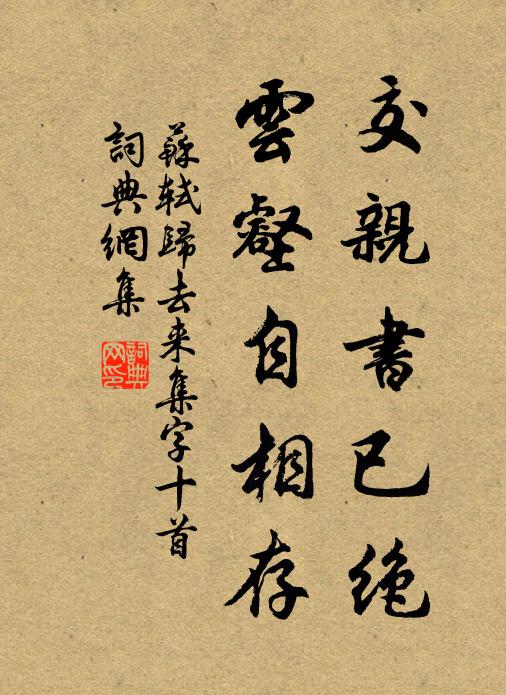 交親書已絶
雲壑自相存
蘇軾歸去来集字十首
詞典網集
詞典網印